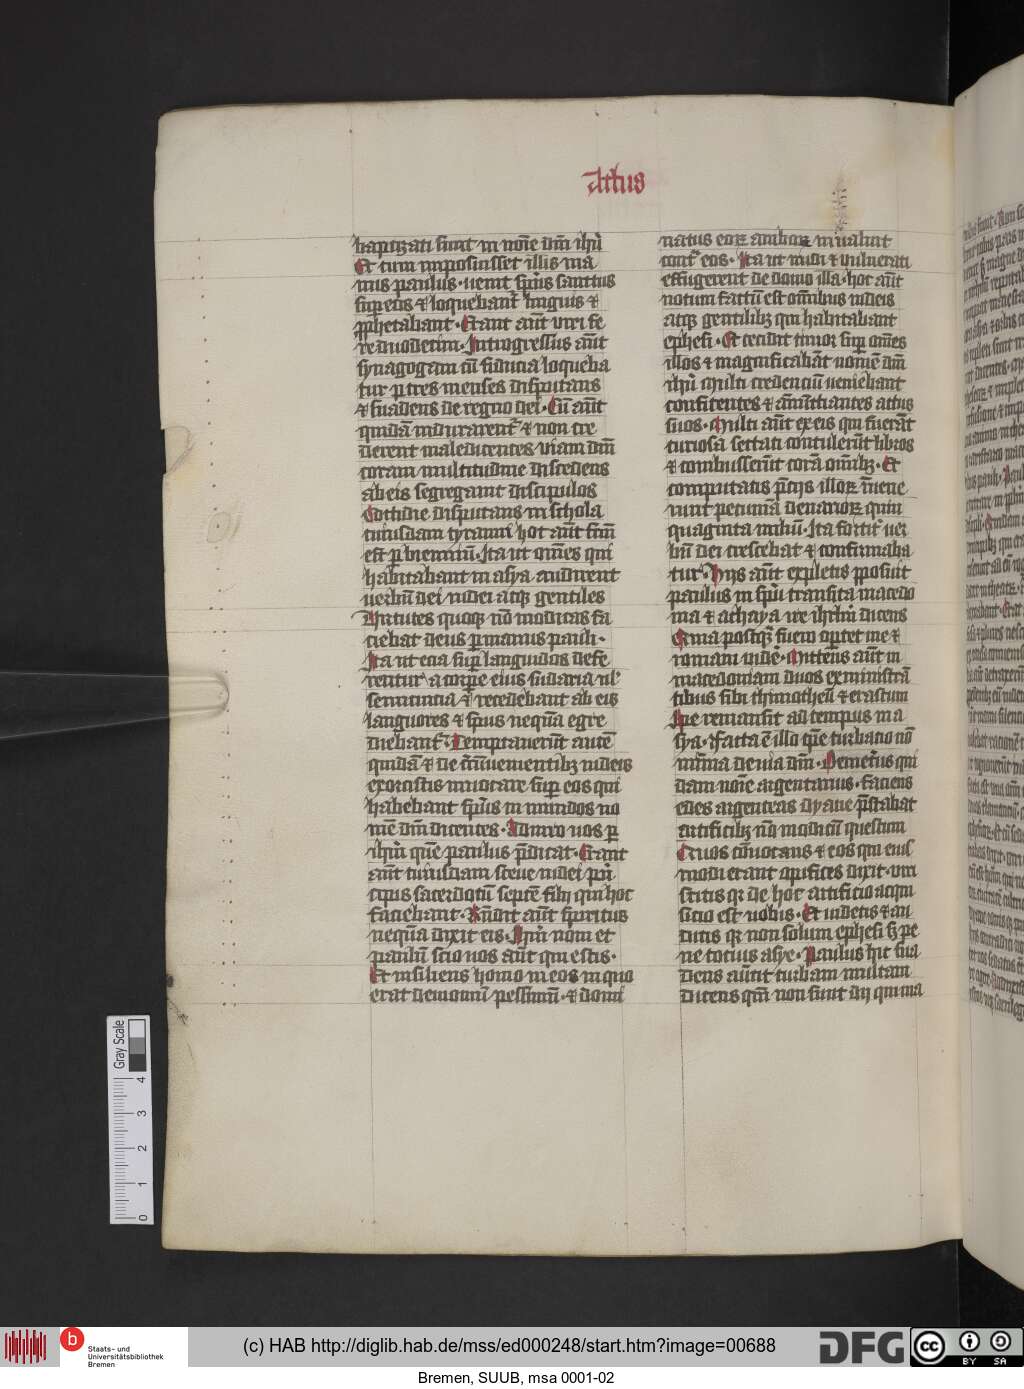 Actus
baptizati sunt in noīe dn̄i ihū
Et cum imposuisset illis ma
nus paulus · uenit sp̄us sanctus
sup̄ eos ⁊ loquebant̄ linguis ⁊
ꝓphetabant · Erant aūt viri fe
re duodecim · Introgressus aūt
synagogam cū fiducia loqueba
tur p tres menses disputans
⁊ suadens de regno dei · Cū aūt
quidā indurarent̄ ⁊ non cre
derent maledicentes viam dn̄i
coram multitudine discedens
ab eis segregauit discipulos
Cottidie disputans in schola
cuiusdam tyranni hoc aūt fc̄m
est p biennīū · Ita ut om̄es qui
habitabant in asya audirent
uerbū dei iudei atq; gentiles
Virtutes quoq; nō modicas fa
ciebat deus p manus pauli ·
Ita ut ecia sup̄ languidos defe
rentur a corpe eius sudaria ul'
semicincia ⁊ recedebant ab eis
languores ⁊ sp̄us nequā egre
diebant̄ · Temptauerūt autē
quidā ⁊ de circūueuientibꝫ iudeis
exorcistis inuocare sup̄ eos qui
habebant sp̄us in mundos no
mē dn̄i dicentes · Adiuro uos p
ihm̄ quē paulus p̄dicat · Erant
aūt cuiusdam sceue iudei pri
cipis sacerdotū septē filii qui hoc
faciebant · Rn̄dit aūt spiritus
nequā dixit eis · Ihm̄ noui et
paulū scio uos aūt qui estis ·
Et insiliens homo in eos in quo
erat demoniū pessimū · ⁊ domi
natus eoꝝ amboꝝ inualuit
cont̄ eos · Ita ut nudi ⁊ vulnerati
effugerent de domo illa · hoc aūt
notum factū est om̄ibus iudeis
atq; gentilibꝫ qui habitabant
ephesi · Et cecidit timor sup̄ om̄es
illos ⁊ magnificabāt nomē dn̄i
ihū Multi credenciū ueniebant
confitentes ⁊ ānūctiantes actus
suos · Multi aūt ex eis qui fuerāt
curiosa sectati contulerūt libros
⁊ combusserūt corā om̄ibꝫ · Et
computatis p̄cijs illoꝝ inuene
runt pecuniā denarioꝝ quin
quaginta miliū · Ita fortit̄ uer
bū dei crescebat ⁊ confirmaba
tur · Hijs aūt expletis pposuit
paulus in sp̄u transita macedo
nia ⁊ achaya ire ihrlm̄ dicens
Qm̄a postq̄ fuero oportet me ⁊
romam uidē · Mittens aūt in
macedoniam duos ex ministrā
tibus sibi thimotheū ⁊ erastum
Ipe remansit ad tempus in a
sya · Facta ē illo tp̄e turbacio nō
minima de uia dn̄i · Demetrius qui
dam noīe argentarius · faciens
edes argenteas dyane p̄stabat
artificibꝫ nō modicū questum
Quos cōuocans ⁊ eos qui eius
modi erant opifices dixit · viri
scitis qꝛ de hoc artificio acqui
sicio est uobis · Et uidetis ⁊ au
ditis qꝛ non solum ephesi sꝫ pe
ne tocius asye · Paulus hic sua
dens aūtit turbam multam
dicens qm̄ non sunt dij qui ma
Gray Scale
4
3
2
1
0
Staats- und
Universitätsbibliothek
Bremen
(c) HAB http://diglib.hab.de/mss/ed000248/start.htm?image=00688
DFG
cc
BY SA
Bremen, SUUB, msa 0001-02